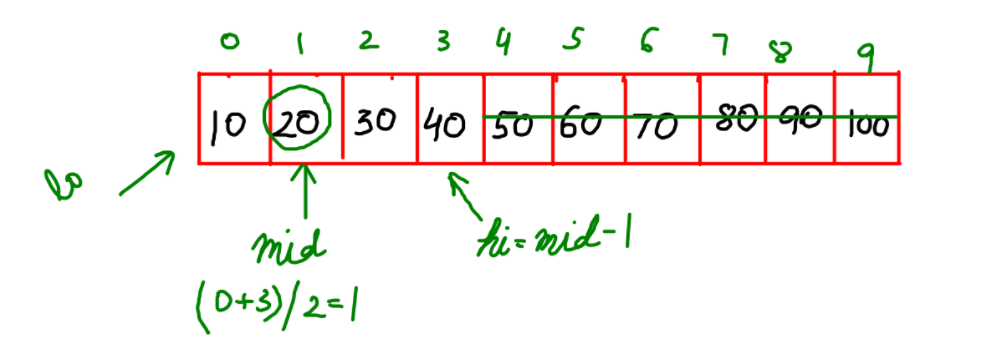 0 1 2 3 4 5 6 7 8 9
10 20 30 40 50 60 70 80 90 100
lo
mid
hi=mid-1
(0+3)/2=1